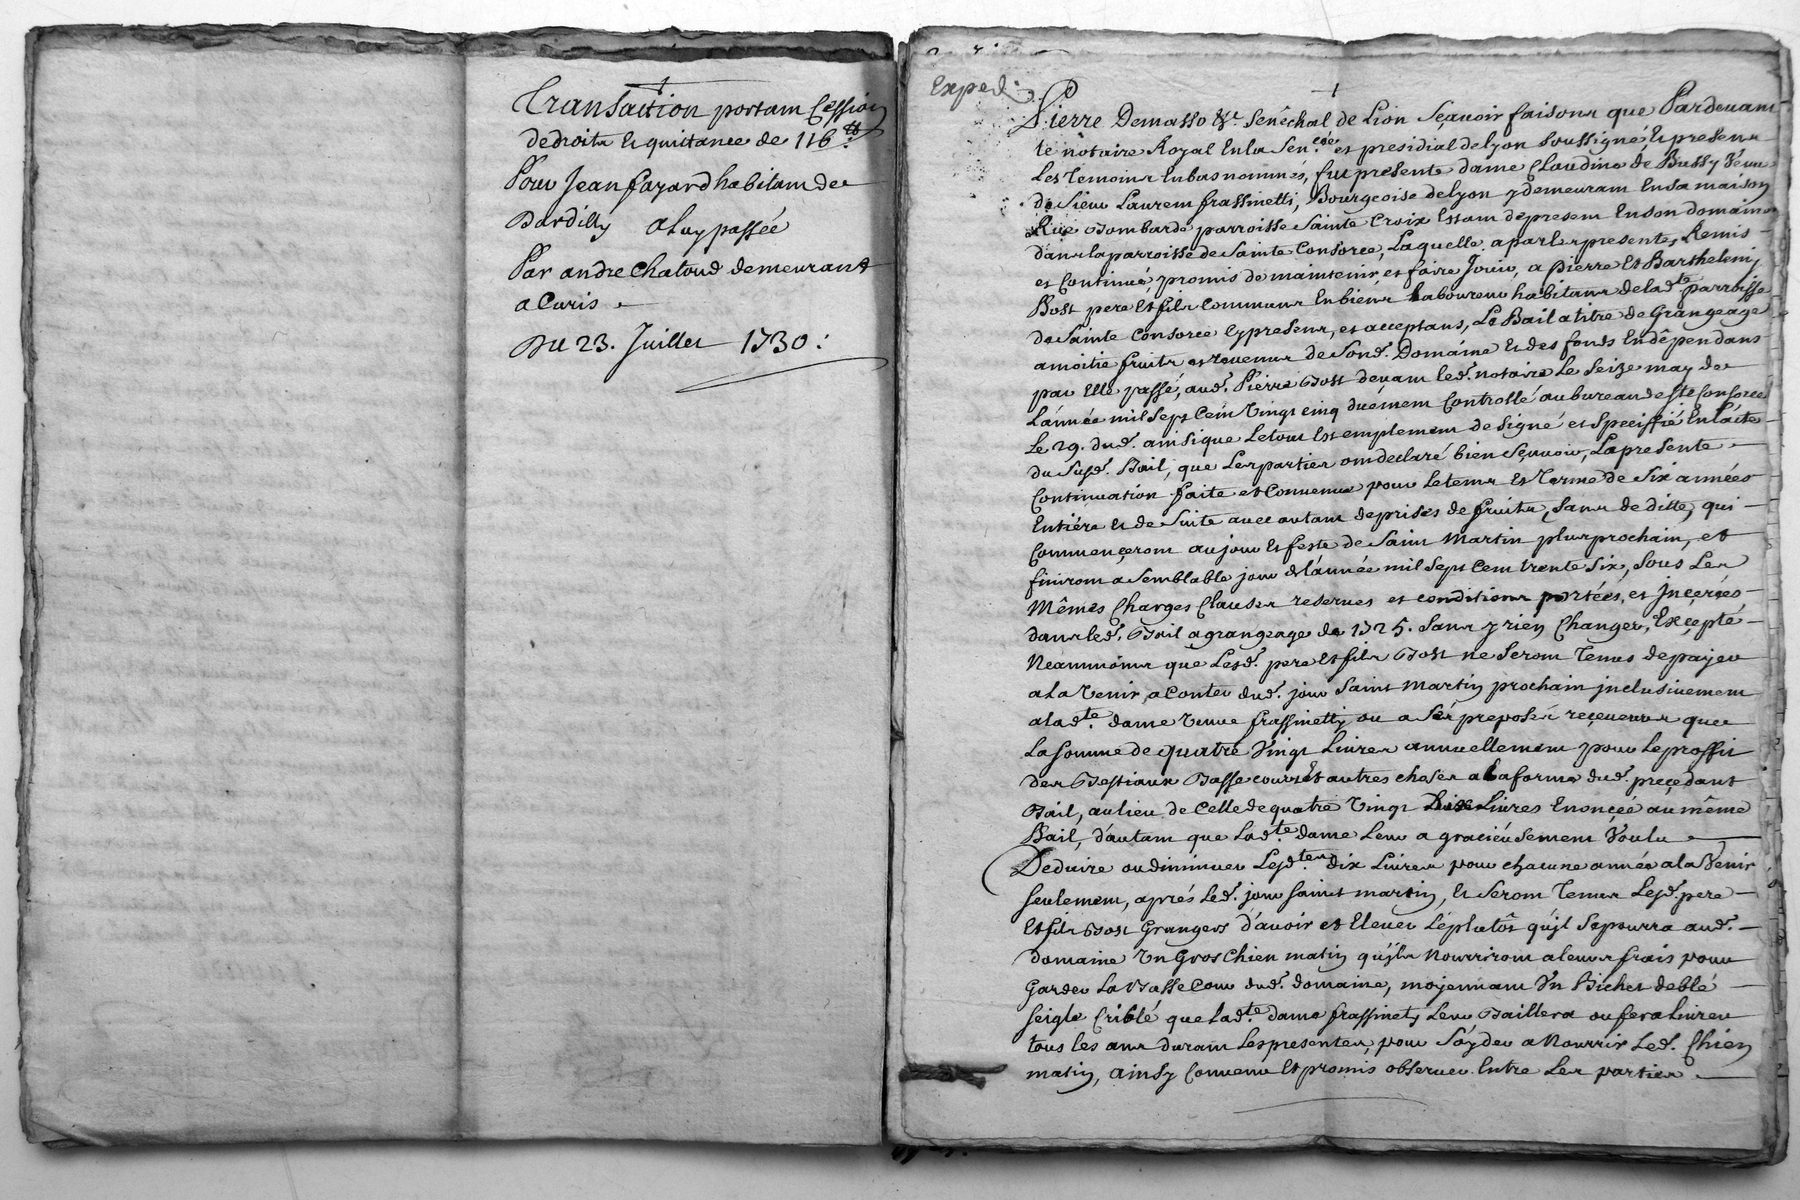 Transaction portant Cession
de droits et quittance de 116 ℔
Pour Jean fayard habitant de
Dardilly a luy passée
Par andre Chatoud demeurant
a Curis
Du 23. Juillet 1730 :
Exped.
Pierre Demasso &c. Senêchal de Lion Sçavoir faisons que Pardevant
le notaire Royal En la Sen.cée et presidial de lyon soussigné, et presens
Les Temoins En bas nommés, fut presente dame Claudine de Bussy Veuve
de Sieur Laurent frassinetti, Bourgeoise de lyon y demeurant En sa maison
Rue Bombarde parroisse Sainte Croix Estant de present En son domaine
dans la parroisse de Sainte Consorce, Laquelle, a par les presentes, Remis
et Continué, promis de maintenir et faire Jouir, a Pierre Et Barthelemi
Bost pere Et fils Communs En biens Laboureurs habitans de lad.te parroisse
de Sainte Consorce Cy presens, et acceptans, Le Bail a titre de Grangeage
a moitié fruits et revenus de Sond. Domaine et des fonds En dêpendans
par Elle passé, aud. Pierre Bost devant led. notaire Le Seize may de
L'année mil Sept Cent Vingt cinq duëment Controllé au bureau de Ste Consorce
Le 29. dud. ainsi que Le tout Est emplement designé et Speciffié En l'acte
du Susd. Bail, que Les parties ont declaré bien Sçavoir, La presente
Continuation faite et Convenue pour Le tems Et Terme de Six années
Entiére et de Suite avec autant de prises de fruits, Sans de ditte, qui
Commençeront au jour et feste de Saint Martin plus prochain, et
finiront a Semblable jour de l'année mil Sept Cent trente Six, Sous Les
Mêmes Charges Clauses reserves et conditions portées, et Jnserées
dans led. Bail a grangeage de 1725. Sans y rien Changer, Excepté
Neanmoins que Lesd. pere Et fils Bost ne Seront Tenus de payer
a La Venir, a Conter dud. jour Saint Martin prochain jnclusivement
a lad.te dame Veuve frassinetti, ou a Ses preposés reçeveurs que
La Somme de quatre Vingt Livres annuellement pour Le proffit
des Bestiaux Basse cour Et autres choses a La forme dud. preçedant
Bail, au lieu de Celle de quatre Vingt Dix Livres Enonçée au même
Bail, d'autant que Lad.te dame Leur a gracieusement Voulu
Deduire ou diminuer Lesd.tes dix Livres pour chacune année a la Venir
seulement, aprés Led. jour saint martin, et Seront Tenus Lesd. pere
Et fils Bost Grangers d'avoir et Elever Le plutôt qu'jl Se pourra aud.
domaine Un Gros Chien matin qu'jls Nourriront a leurs frais pour
Garder La Basse Cour dud. domaine, moyennant Un Bichet de blé
seigle Criblé que Lad.te dame frassinety Leur Baillera ou fera Livrer
tous les ans durant Les presentes, pour S'ayder a Nourrir Led. Chien
matin, ainsy Convenu Et promis observer Entre Les parties